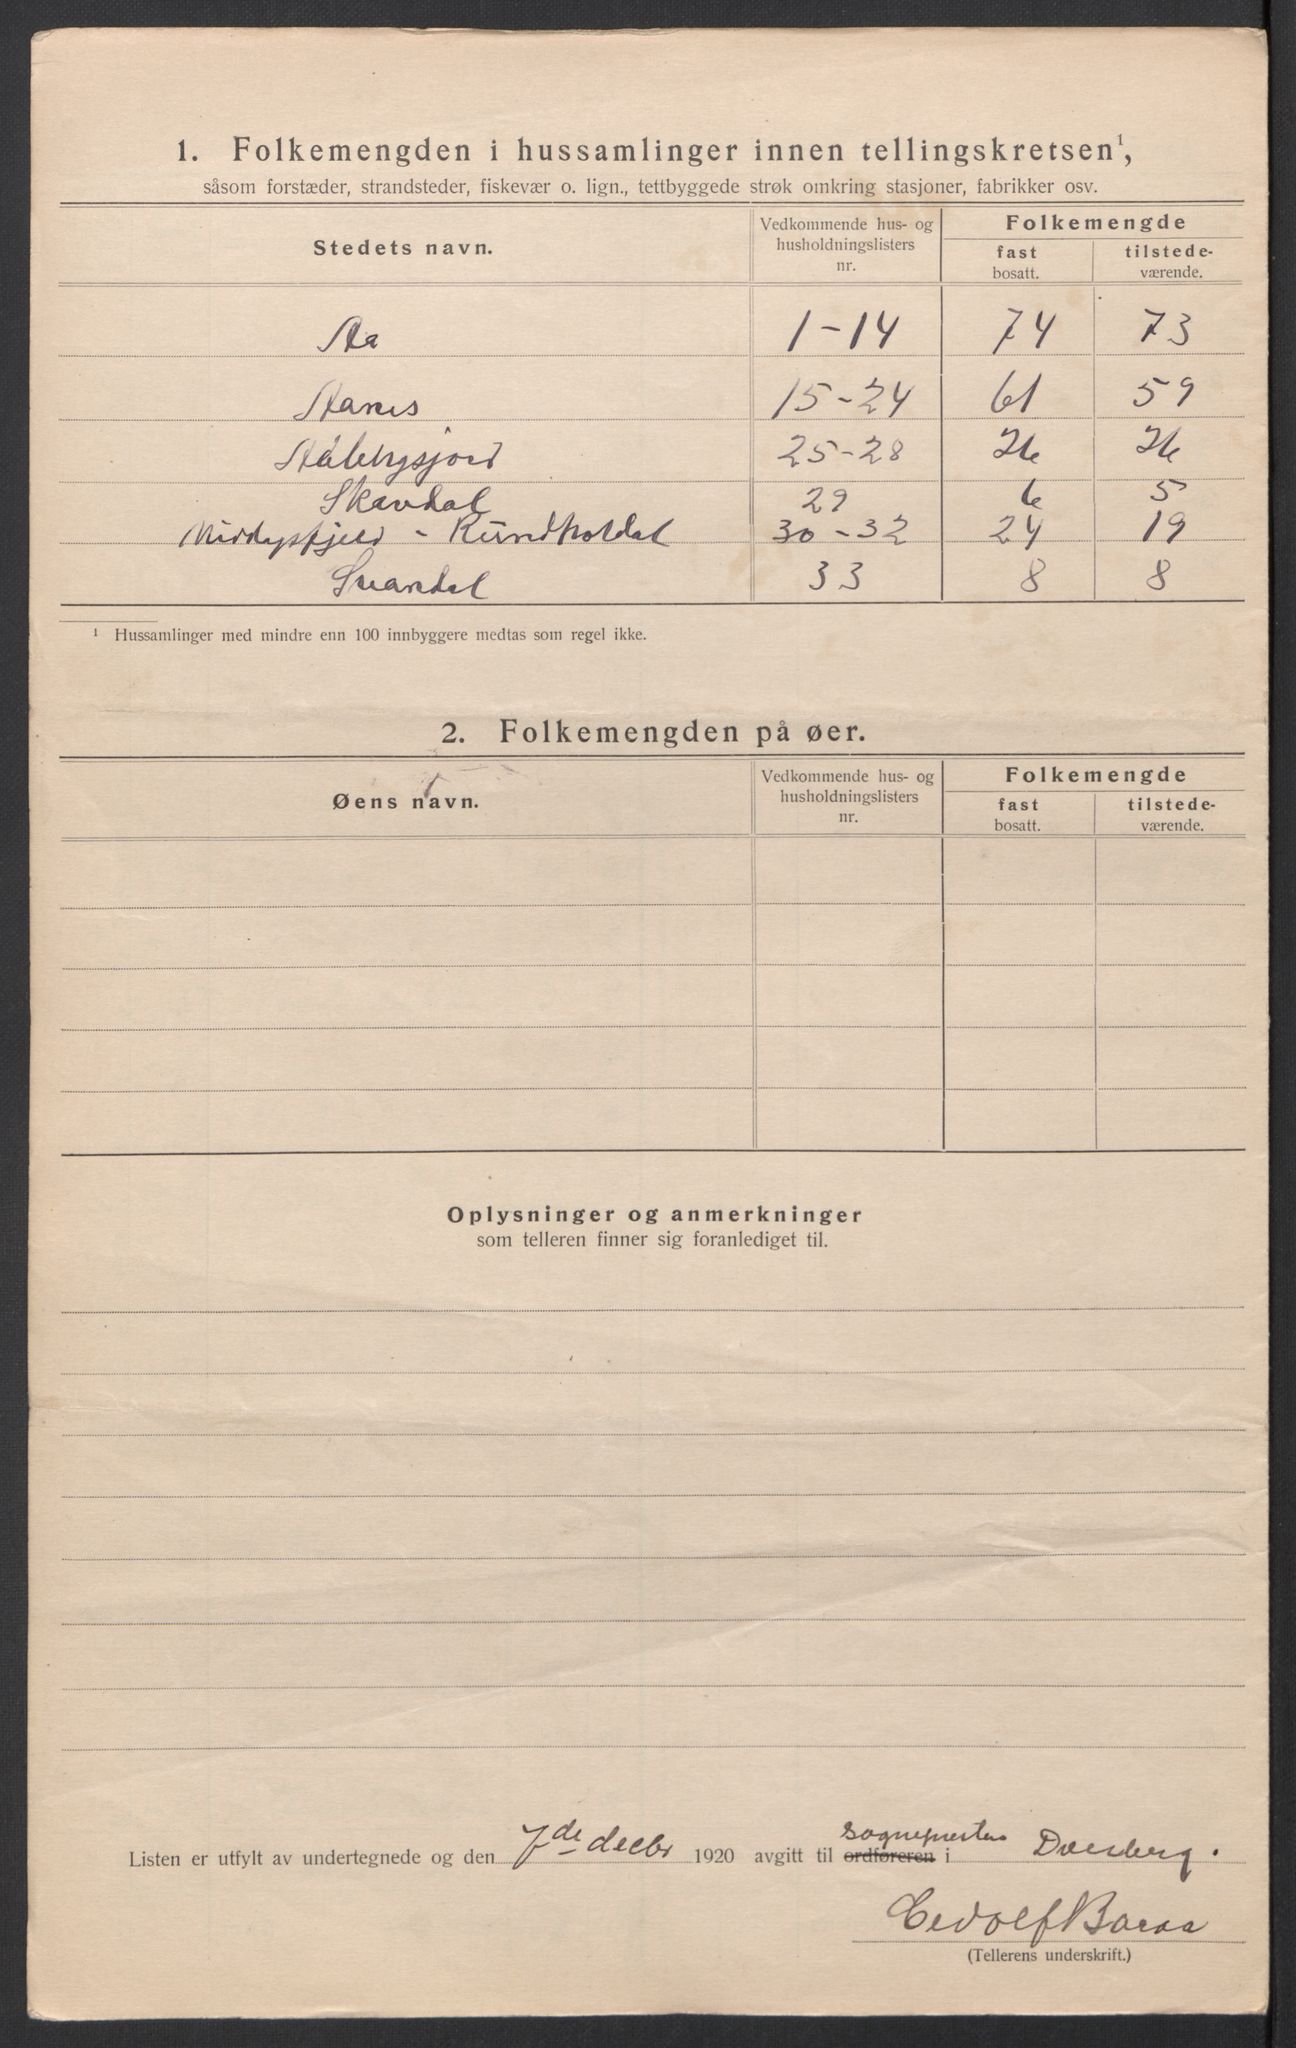 1. Folkemengden i hussamlinger innen tellingskretsen¹,
såsom forstæder, strandsteder, fiskevær o. lign., tettbyggede strøk omkring stasjoner, fabrikker osv.
Stedets navn. Vedkommende hus- og husholdningslisters nr. Folkemengde
fast bosatt. tilstede-værende.
Aa 1-14 74 73
Aanes 15-24 61 59
25-28 26 26
Skavdal 29 6 5
30-32 24 19
Svandal 33 8 8
¹ Hussamlinger med mindre enn 100 innbyggere medtas som regel ikke.
2. Folkemengden på øer.
Øens navn. Vedkommende hus- og husholdningslisters nr. Folkemengde
fast bosatt. tilstede-værende.
Oplysninger og anmerkninger
som telleren finner sig foranlediget til.
sognepresten
Listen er utfylt av undertegnede og den 7de decbr 1920 avgitt til ordføreren i Dverberg.
(Tellerens underskrift.)